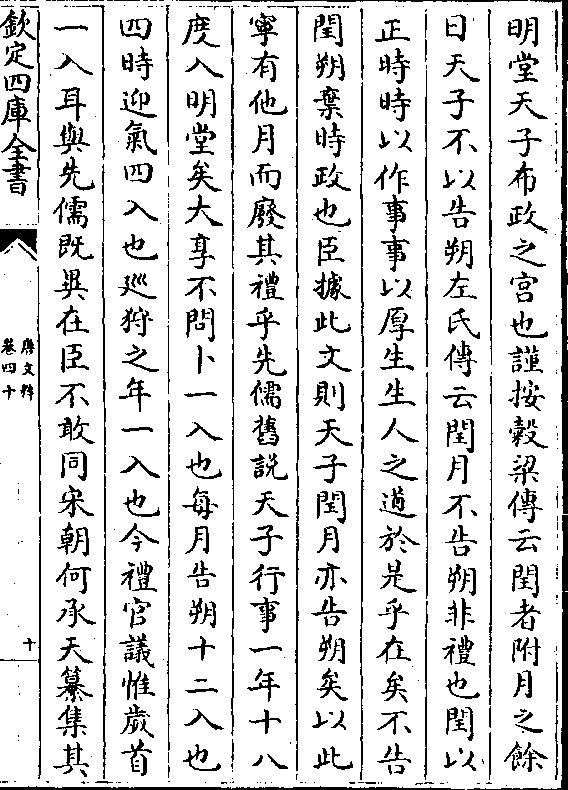 明堂天子布政之宮也謹按穀梁傳云閏者附月之餘
日天子不以告朔左氏傳云閏月不告朔非禮也閏以
正時時以作事事以厚生生人之道於是乎在矣不告
閏朔棄時政也臣據此文則天子閏月亦告朔矣以此
寧有他月而廢其禮乎先儒舊説天子行事一年十八
度入明堂矣大享不問卜一入也每月告朔十二入也
四時迎氣四入也巡狩之年一入也今禮官議惟歲首
一入耳與先儒既異在臣不敢同宋朝何承天纂集其
欽定四庫全書
唐文粹
卷四十
十